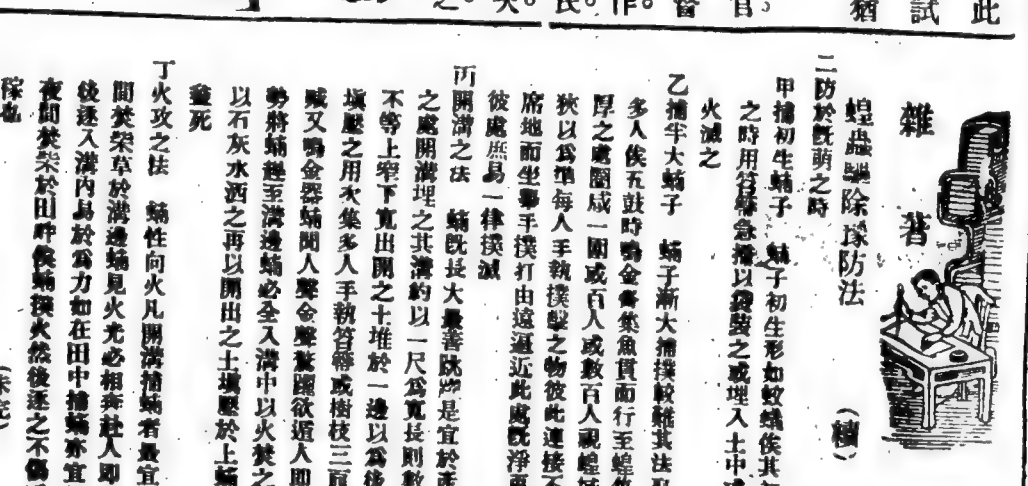 此
試
猶
雜著
蝗蟲驅除豫防法 (續)
二防於旣萌之時
甲捕初生蝻子 蝻子初生形如蚊蟻俟其
之時用笤箒急掃以袋裝之或埋入土中
火滅之
乙捕半大蝻子 蝻子漸大捕撲較難其法
多人俟五鼓時鳴金齊集魚貫而行至蝗
厚之處圍成一圍或百人或數百人視蝗
狹以爲準每人手執撲擊之物彼此連接不
席地而坐舉手撲打由遠逼近此處旣淨
彼處庶易一律撲滅
丙開溝之法 蝻旣長大最善跳躍是宜於
之處開溝埋之其溝約以一尺爲寬長則數
不等上窄下寬出開之土堆於一邊以爲後
塡壓之用次集多人手執笤箒或樹枝三面
喊又鳴金器蝻聞人聲金聲驚躍欲遁人即
勢將蝻趕至溝邊蝻必全入溝中以火焚之
以石灰水洒之再以開出之土塡壓於上蝻
盡死
丁火攻之法 蝻性向火凡開溝捕蝻者最宜
間焚柴草於溝邊蝻見火光必相奔赴人即
後逐入溝內易於爲力如在田中捕蝻亦宜
夜間焚柴於田畔俟蝻撲火然後逐之不傷
稼也 (未完)